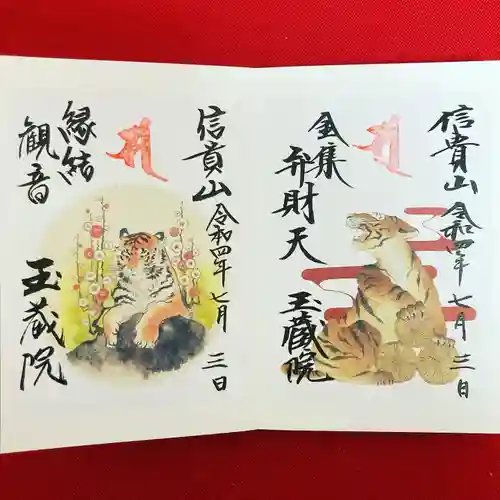 信貴山
令和四年七月三日
金集
弁財天
玉蔵院
信貴山
令和四年七月三日
縁結
観音
玉蔵院